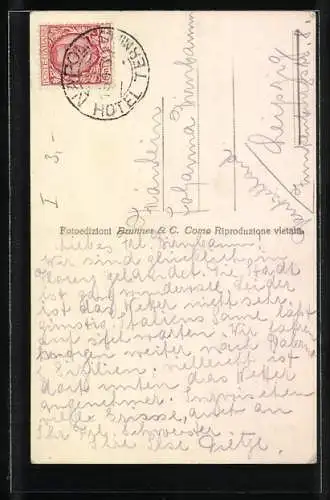 HOTEL
I 3,-
Fräulein
Johanna Birnbaum
Leipzig
Deutschland
Fotoedizioni Brunner & C. Como Riproduzione vietata
Liebes Frl. Birnbaum.
Wir sind glücklich in
Florenz gelandet. Die Stadt
ist ganz wundervoll. Leider
ist das Wetter nicht sehr
günstig, Italiens Sonne läßt
auf sich warten. Wir
morgen weiter nach
Sizilien. Vielleicht ist
dort unten das Wetter
angenehmer. Inzwischen
viele Grüsse, auch an
Ihr Frl. Schwester.
Ihre Ilse